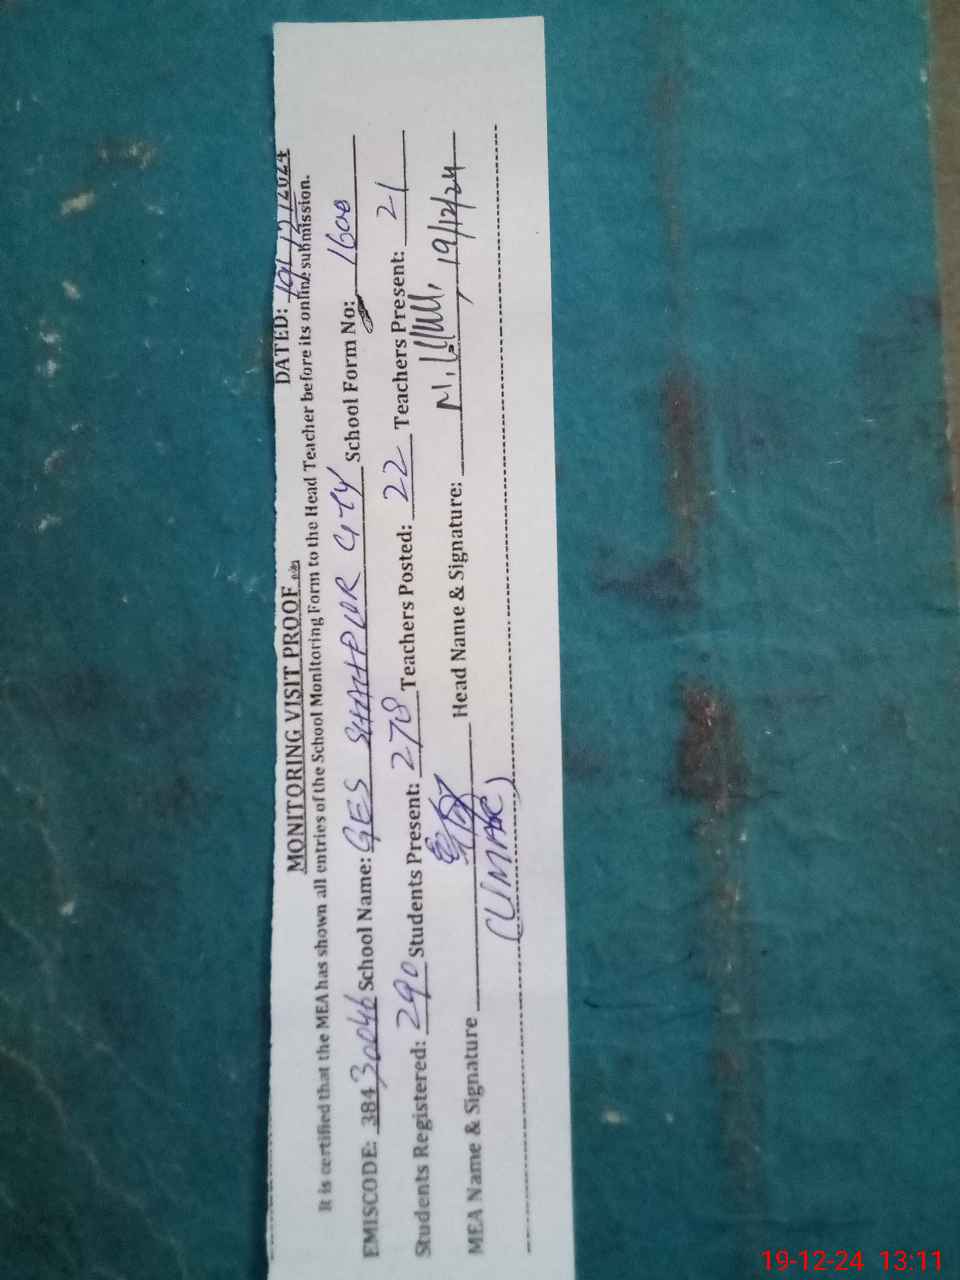 MONITORING VISIT PROOF DATED: 19/12/2024
It is certified that the MEA has shown all entries of the School Monitoring Form to the Head Teacher before its online submission.
EMISCODE: 38430046 School Name: GES SHAHPUR CITY School Form No: 1600
Students Registered: 290 Students Present: 278 Teachers Posted: 22 Teachers Present: 21
MEA Name & Signature Head Name & Signature: 19/12/24
(UMAR)
19-12-24 13:11